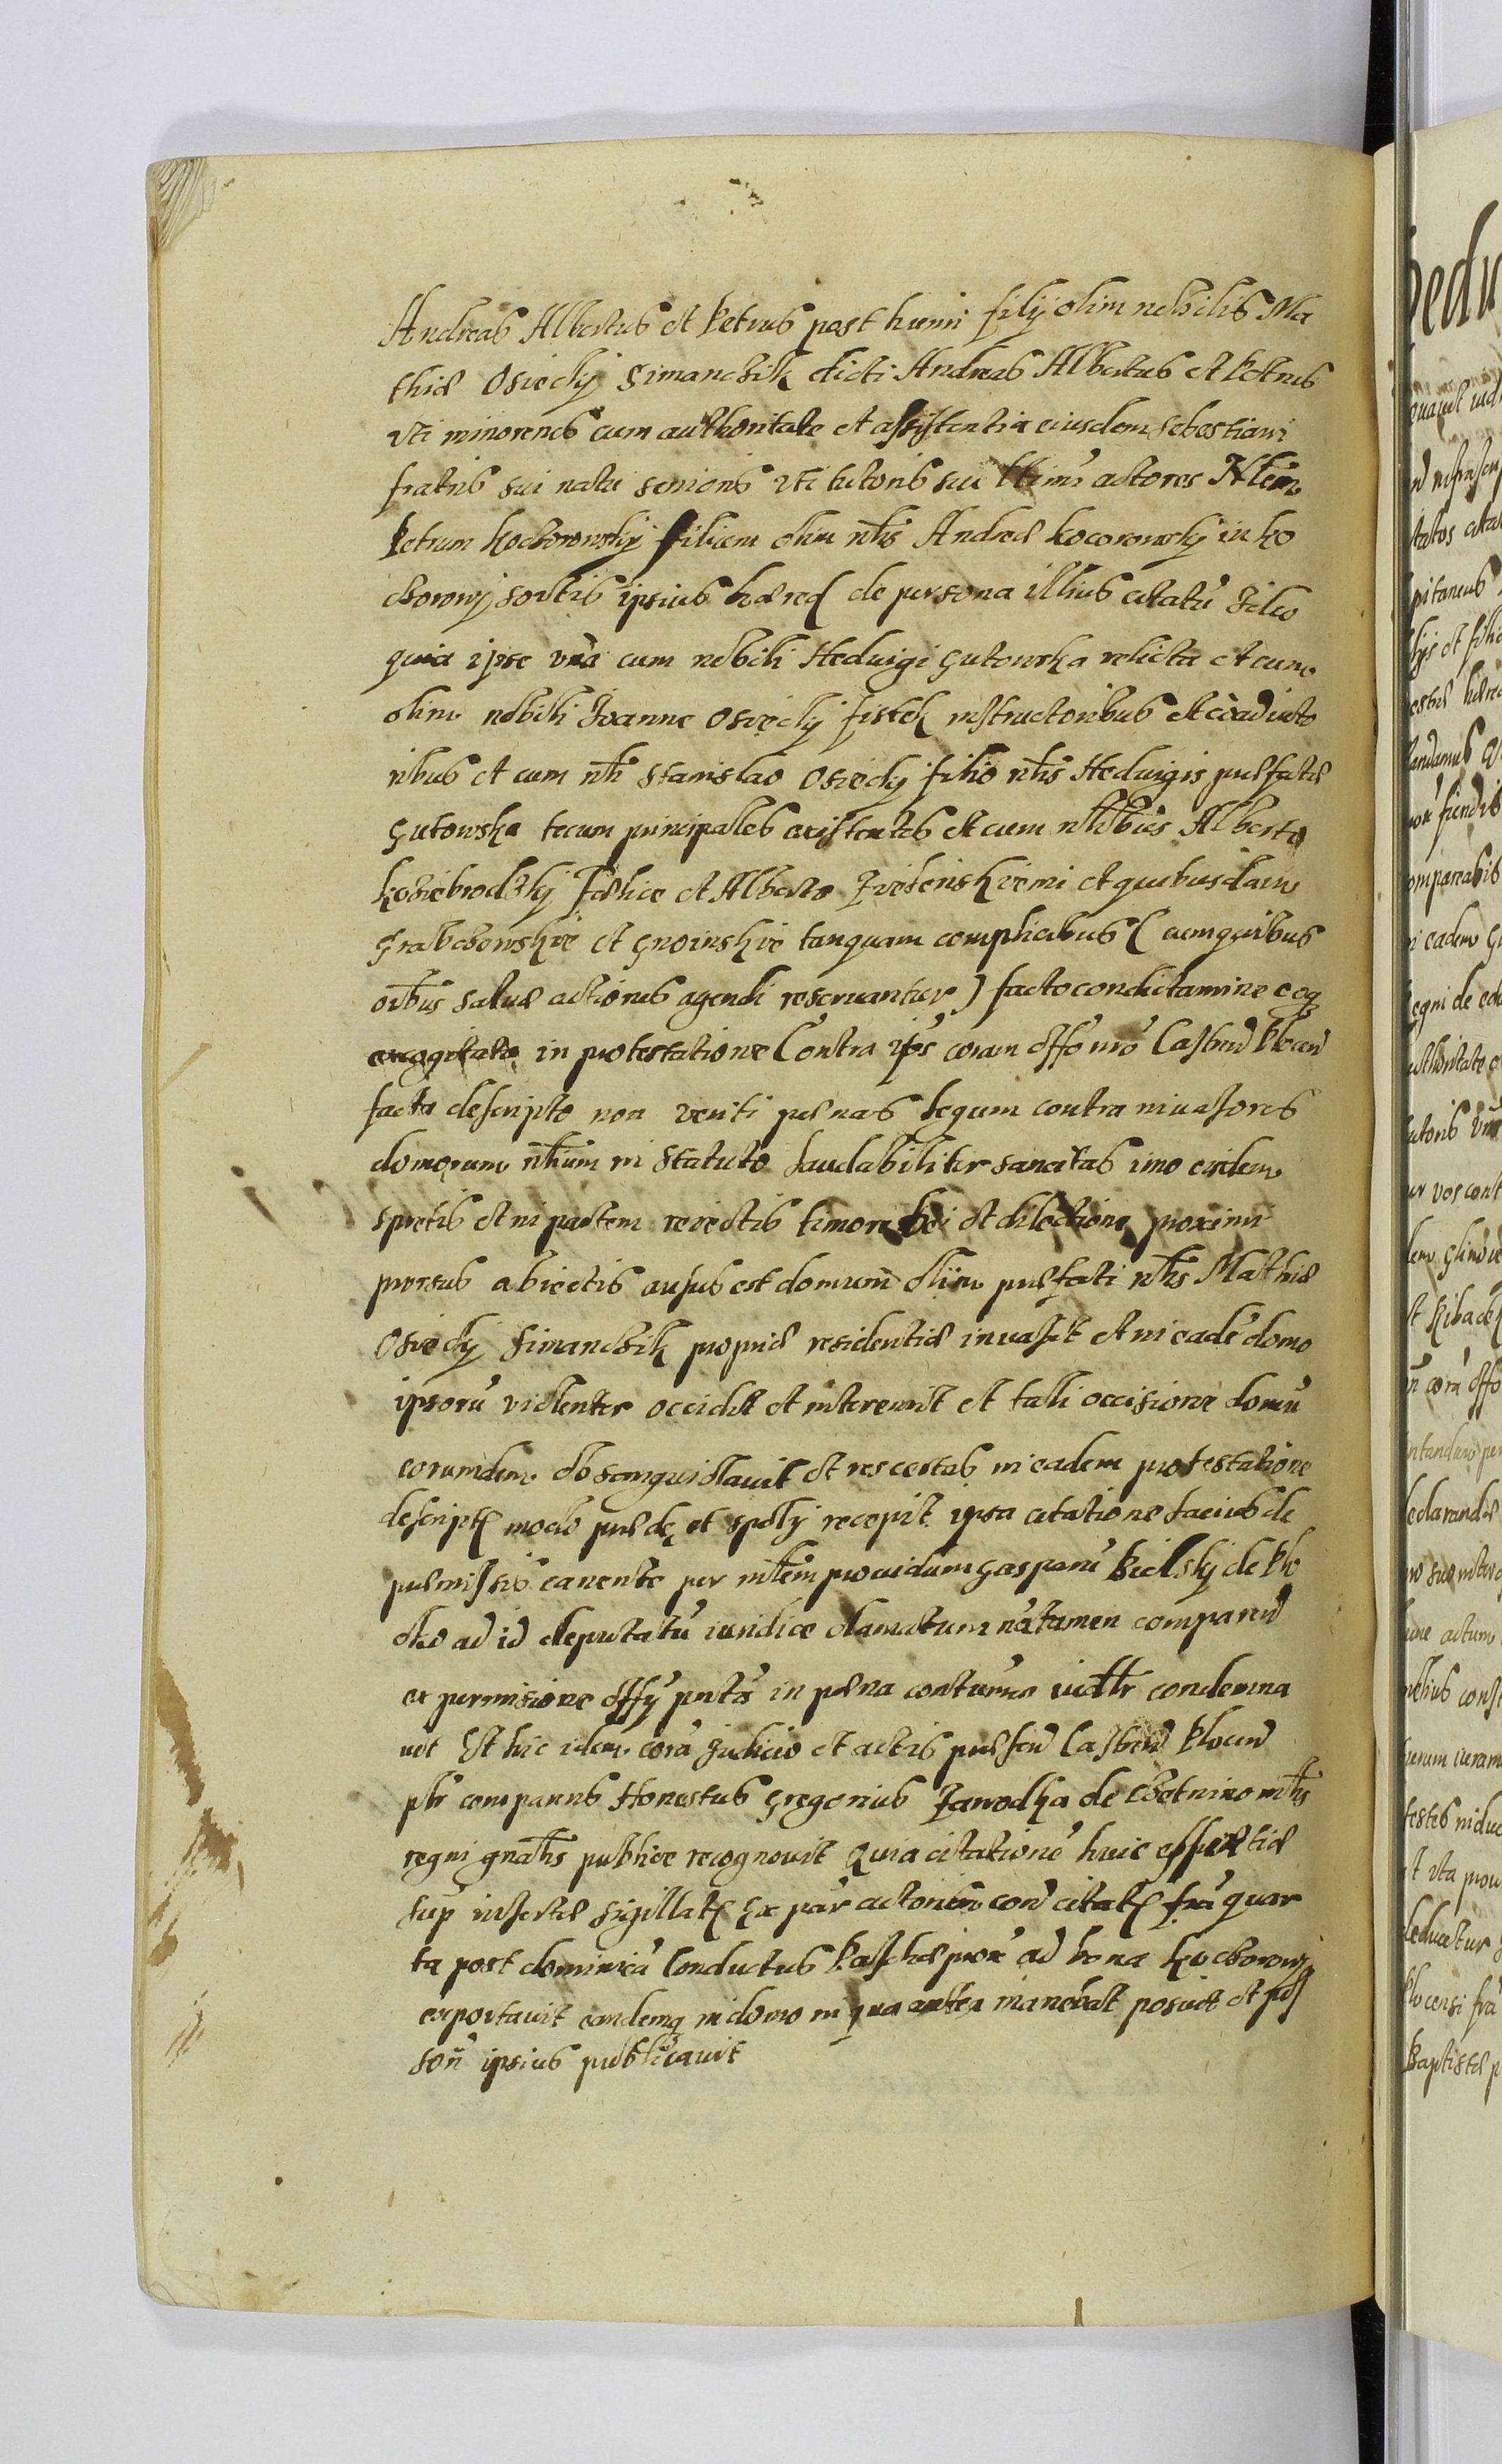 Andreas Albertus et Petrus post humi filÿ olim nobilis Ma
thiæ Osieckÿ Simanchik dicti Andreas Albertus et Petrus
vti minorenes cum authoritate et assistentia eiusdem Sebastiani
fratris sui natu senioris vti tutoris sui actores Nlem
Petrum Kochorowskÿ filium olim nlis Andreæ Kocorowskÿ in Ko
chorowÿ sortis ipsius hæred de persona illius citatu Ideo
quia ipse vna cum nobili Hedvigi Gutowska relicta et cum
olim nobili Joanne Osieckÿ fistek instructoribus et coadiuto
ribus et cum nli Stanislao Osieckÿ filio nlis Hedvigis præfatæ
Gutowska tecum principalles existentes et cum nlibus Alberto
Koziebrodzkÿ Fælice et Alberto et quibusdam
Grabchowskie et Gnoinskie tanquam complicibus (cumquibus
oibus saluæ actiones agendi reseruantur) facto condictamine ecq
excogitato in protestatione Contra ips coram offo nro Castren Plocen
facta descripto non veriti pænas legum contra inuasores
domorum nlium in Statuto laudabiliter sancitas imo eisdem
spretis et in partem reiectis timore Dei et dilectione proximi
prorsus abiectis ausus est domum olim præfati nlis Mathiæ
Osieckÿ Simanchik propriæ residentiæ inuasit et in eade domo
ipsoru violenter occidit et interemit et talli occisione domu
eorumdem obsanguiolauit et res certas in eadem protestatione
descript modo prædę et spolÿ recepit ipsa citatione lacius de
præmissis canente per nlem prouidum Gasparu Bielskÿ de Plo
cko ad id deputatu iuridice clamatum na tamen comparen
ex permisione offÿ pntis in pæna contumacia iudlr condemna
uit Et hic idem cora Judicio et actis præsen Castren Plocen
plr comparens Honestus Gregorius Zawodka de Chetnino mlis
regni gnalis publice recognouit Quia citatione huic
sup insertæ sigillat Ex par actorum con citat fra quar
ta post dominica Conductus Paschæ prox ad bona Kochorowÿ
exportauit eandemq in domo in qua antea manebat posuit et po
son ipsius publicauit